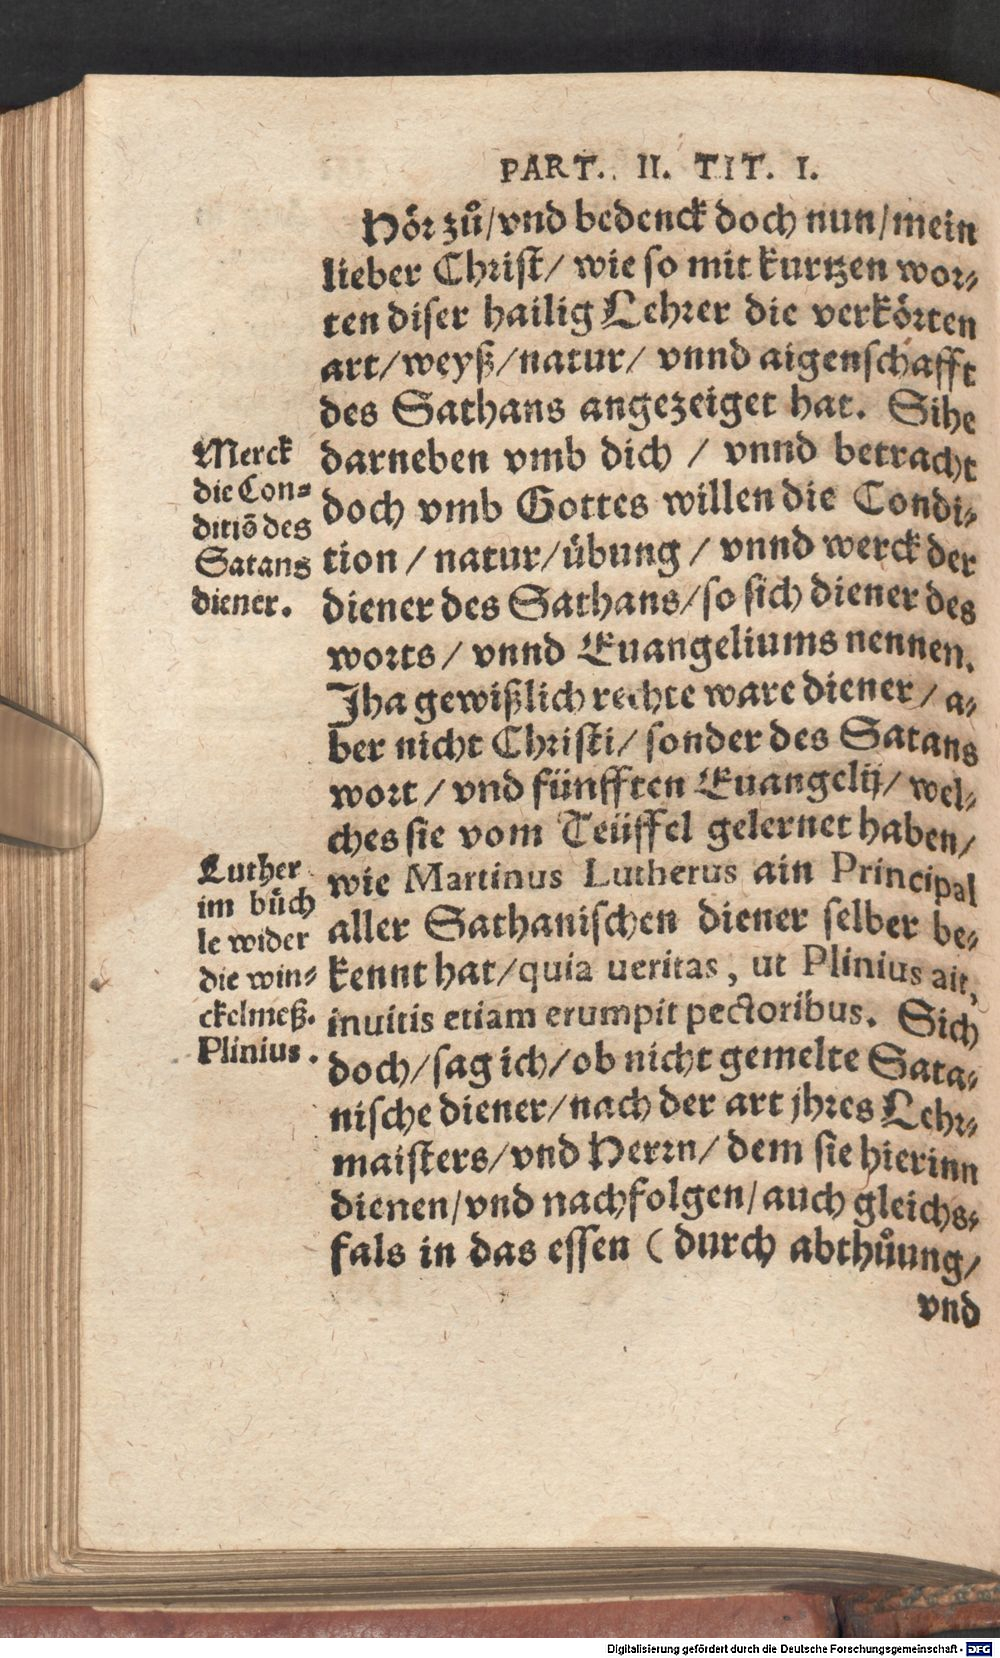 PART. II. TIT. I.
Hör zů/vnd bedenck doch nun/mein
lieber Christ/ wie so mit kurtzen wor⸗
ten diser hailig Lehrer die verkörten
art/weyß/natur/ vnnd aigenschafft
des Sathans angezeiget hat. Sihe
darneben vmb dich / vnnd betracht
doch vmb Gottes willen die Condi⸗
tion / natur/übung / vnnd werck der
diener des Sathans/so sich diener des
worts / vnnd Euangeliums nennen.
Jha gewißlich rechte ware diener / a⸗
ber nicht Christi/ sonder des Satans
wort / vnd fünfften Euangelij/ wel⸗
ches sie vom Teüffel gelernet haben/
wie Martinus Lutherus ain Principal
aller Sathanischen diener selber be⸗
kennt hat/quia ueritas, ut Plinius ait,
inuitis etiam erumpit pectoribus. Sich
doch/sag ich/ob nicht gemelte Sata⸗
nische diener/nach der art jhres Lehr⸗
maisters/vnd Herrn/ dem sie hierinn
dienen/vnd nachfolgen/auch gleichs⸗
fals in das essen ( durch abthůung/
vnd
Merck
die Con⸗
ditiō des
Satans
diener.
Luther
im bůch
le wider
die win⸗
ckelmeß.
Plinius.
Digitalisierung gefördert durch die Deutsche Forschungsgemeinschaft - DFG